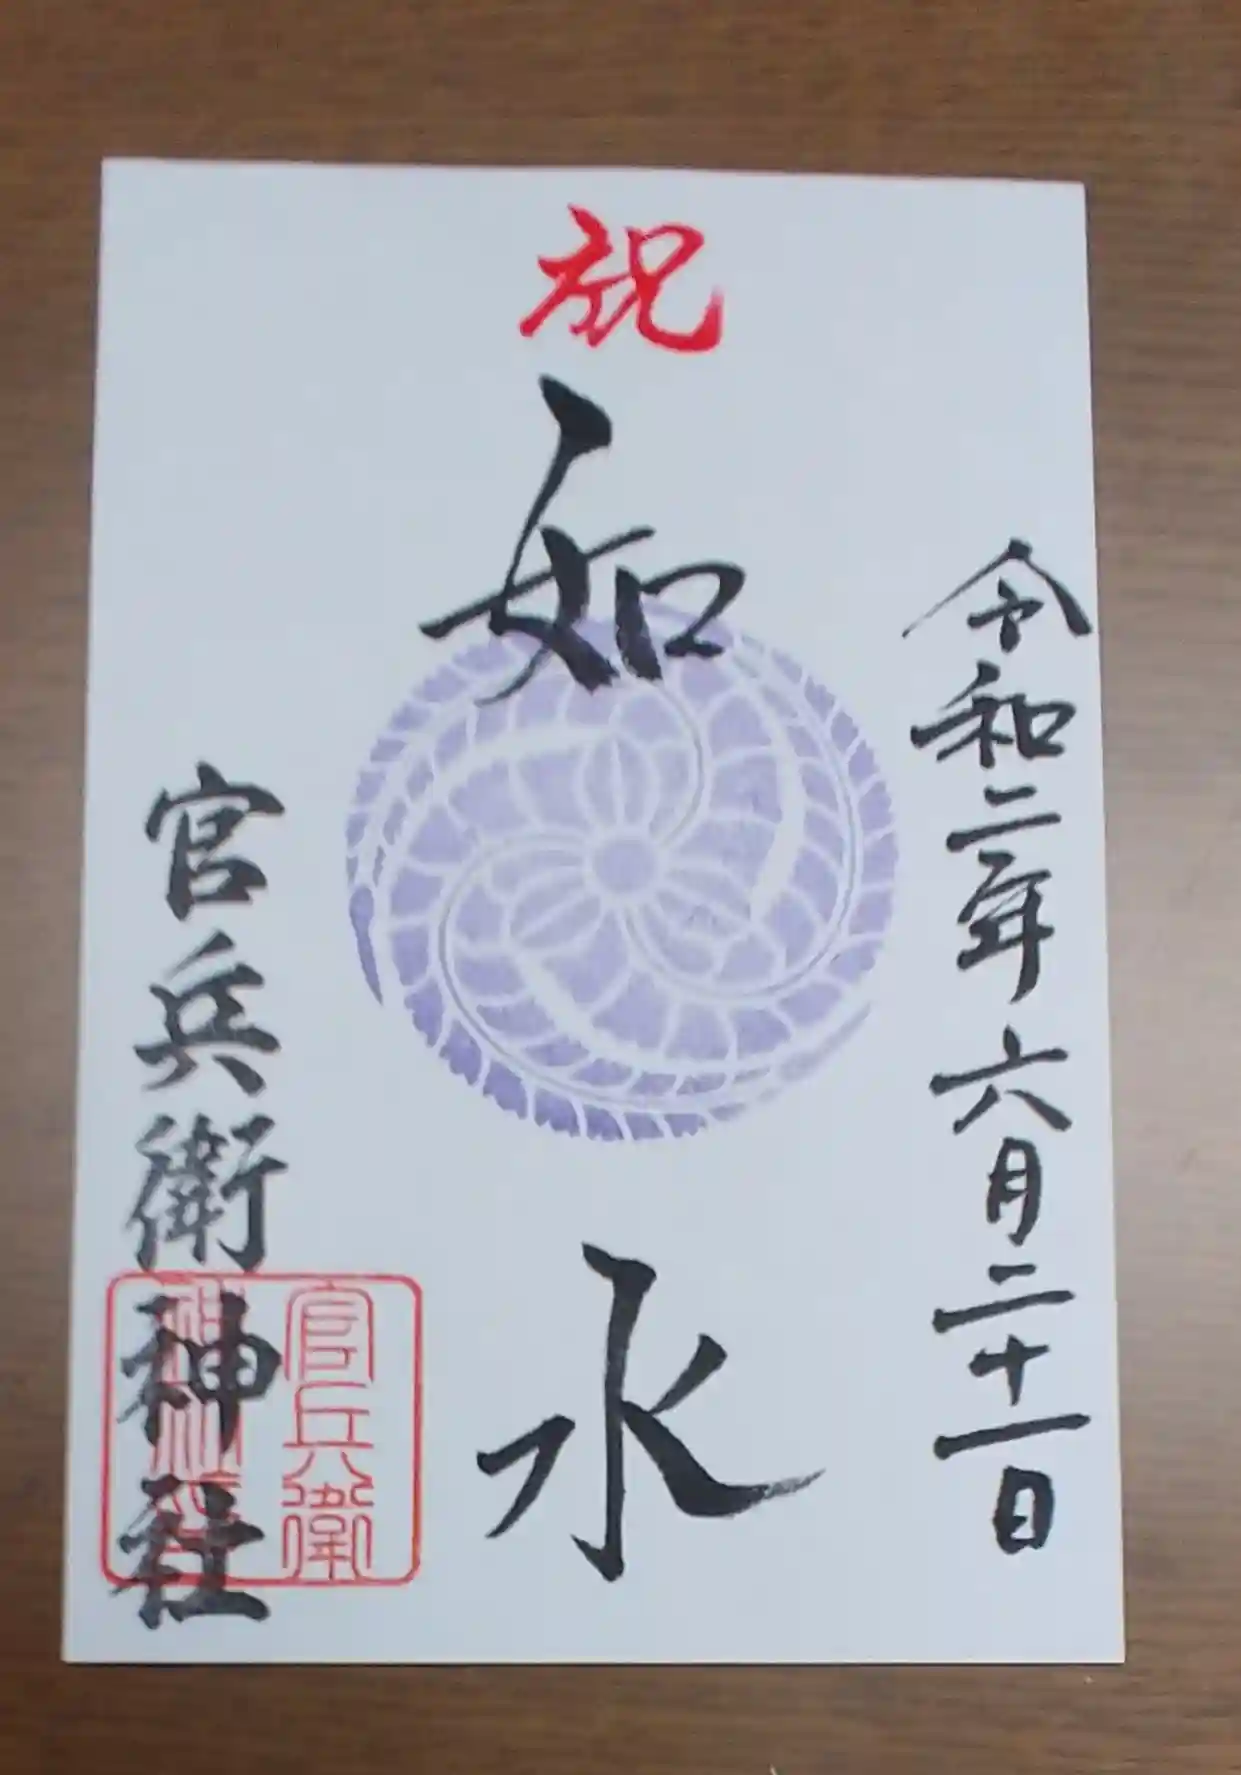 令和二年六月二十一日
祝
如水
官兵衛神社
官兵衛